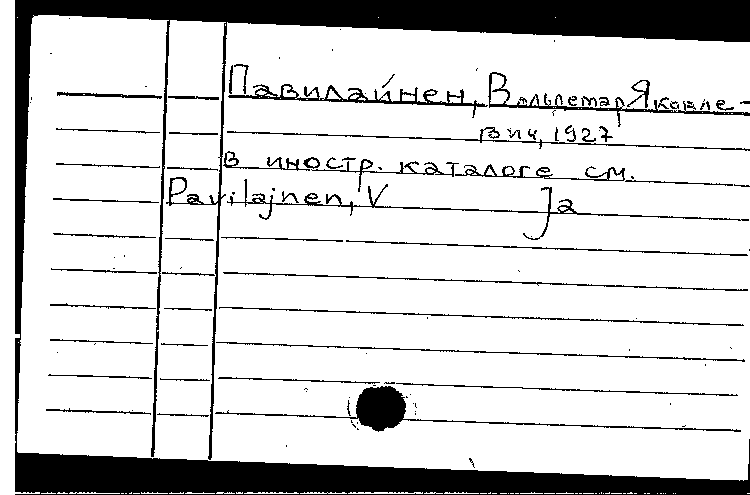 Павилайнен, Вольдемар Яковле-
вич, 1927
в иностр. каталоге см.
Pavilajnen, V Ja